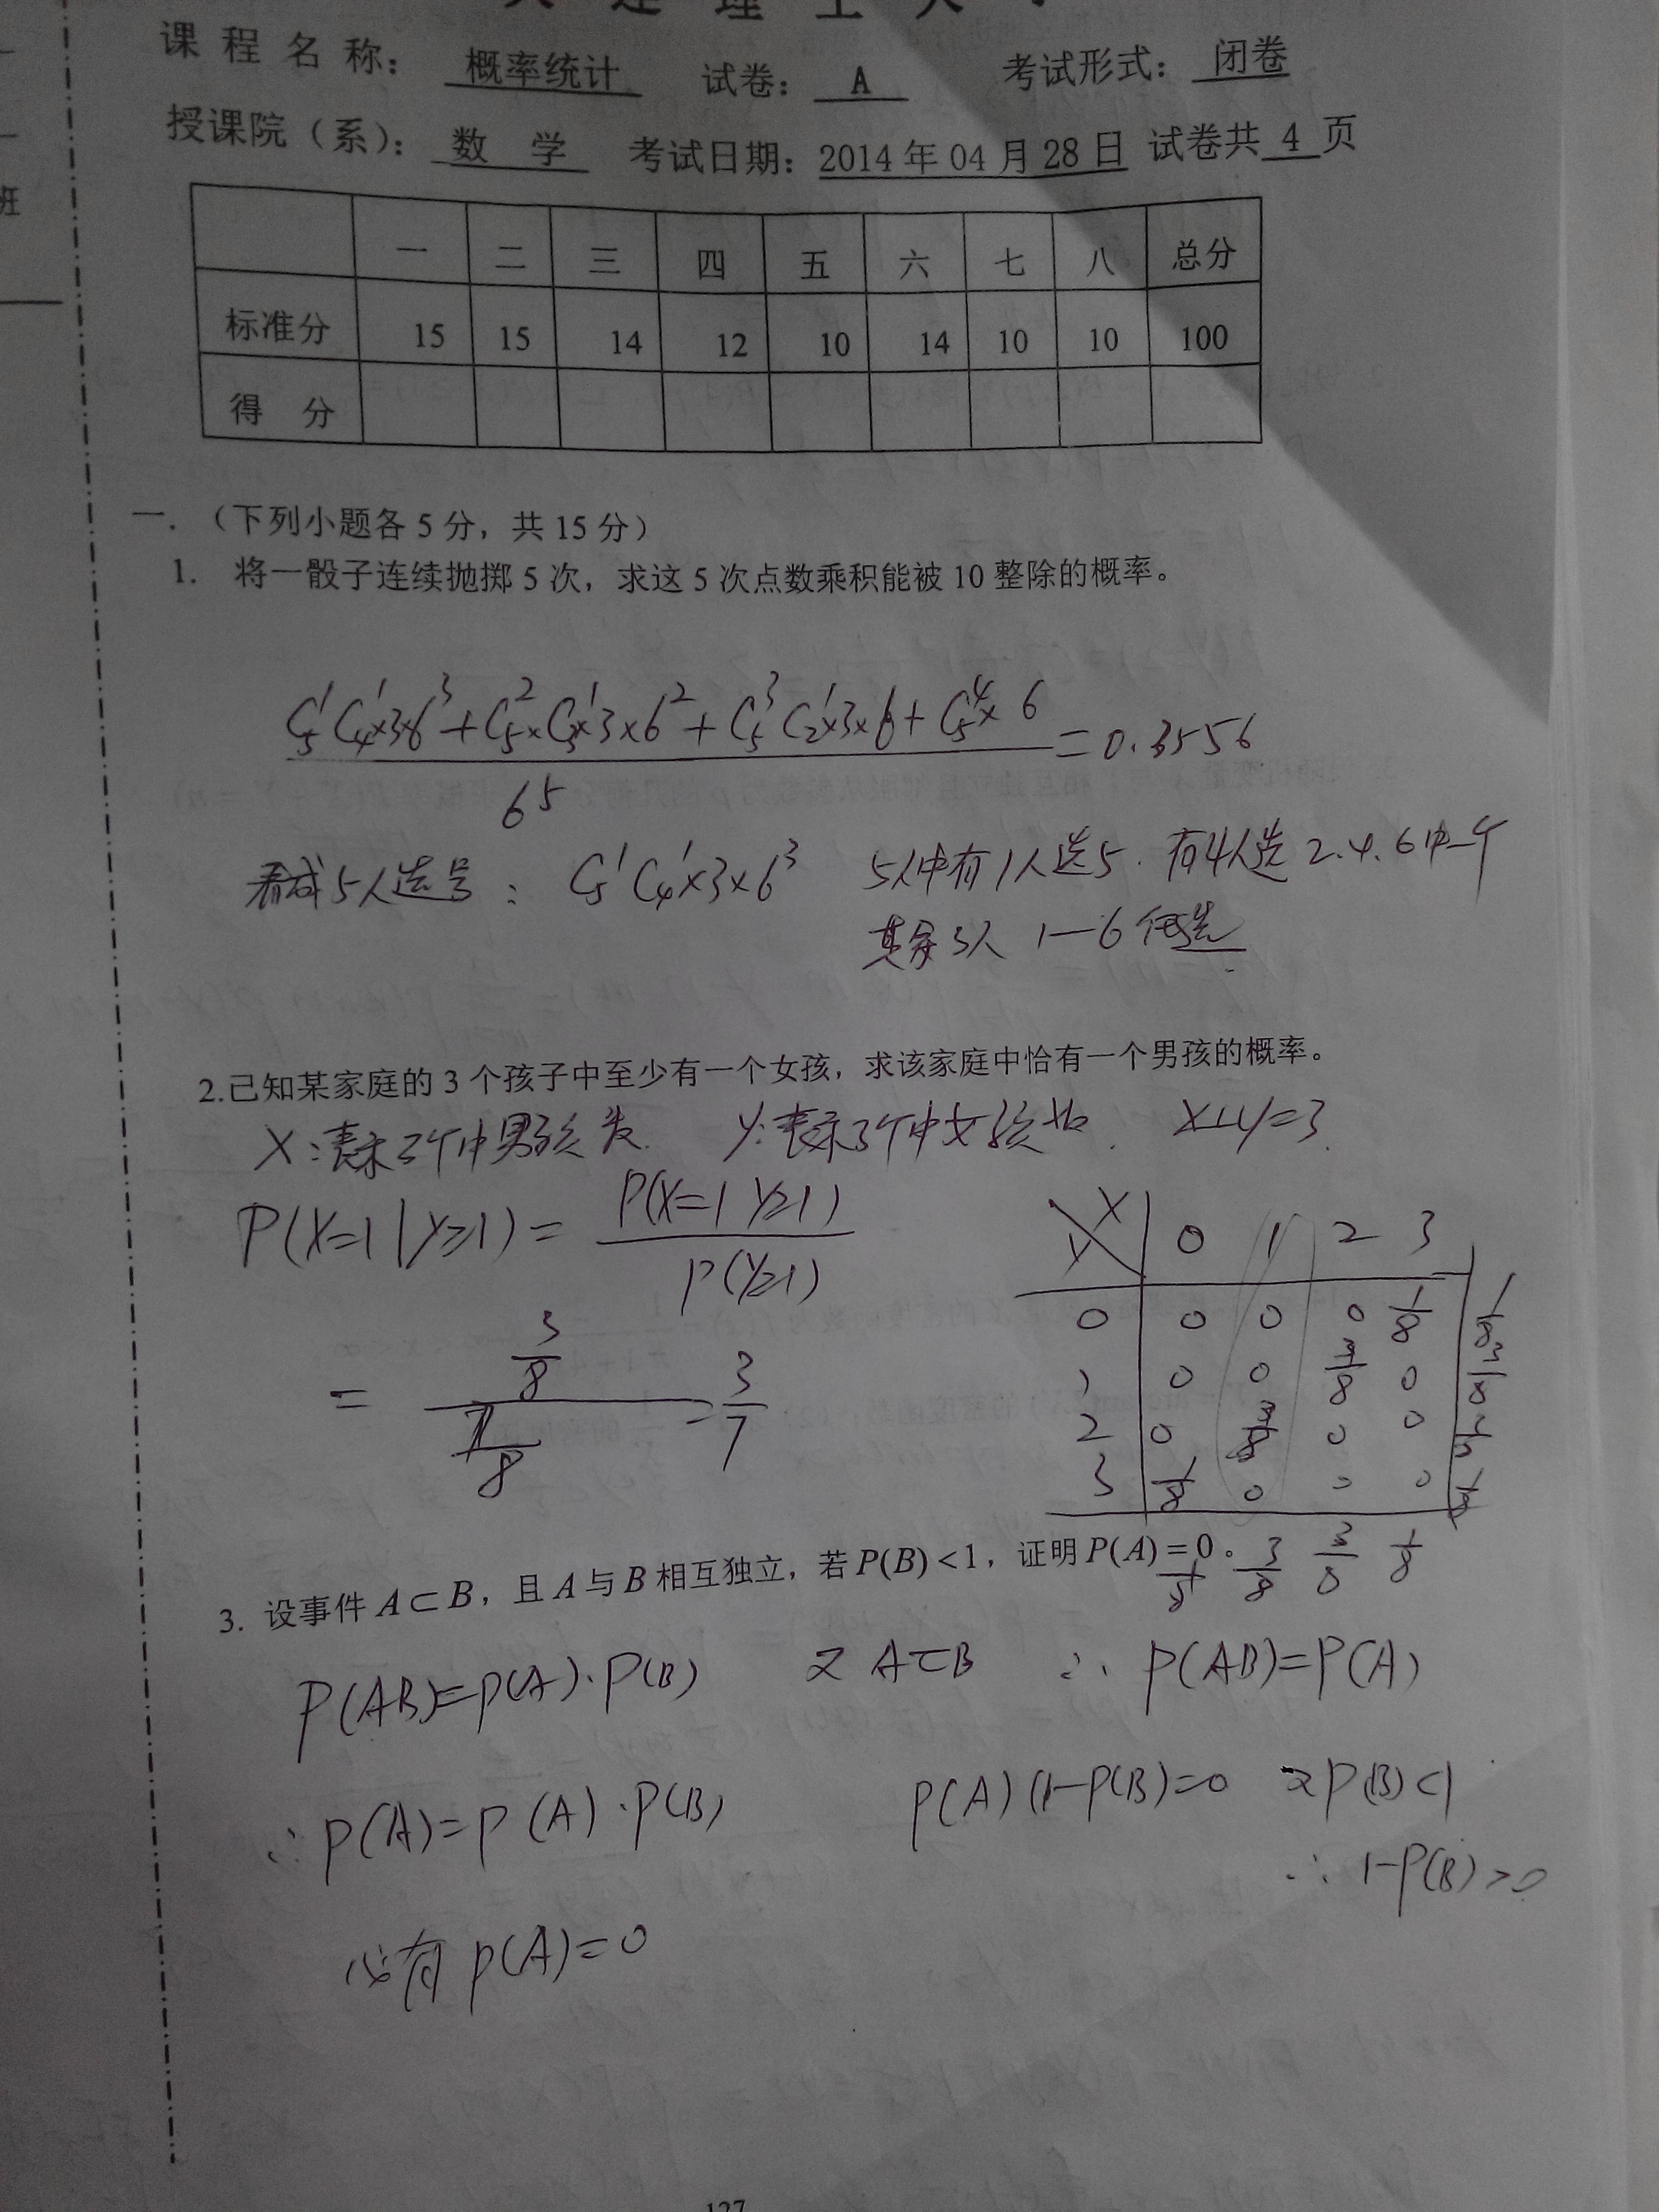 课程名称： 概率统计 试卷： A 考试形式： 闭卷
授课院（系）： 数 学 考试日期：2014年04月28日 试卷共 4 页
一 二 三 四 五 六 七 八 总分
标准分 15 15 14 12 10 14 10 10 100
得 分
一. （下列小题各5分，共15分）
1. 将一骰子连续抛掷5次，求这5次点数乘积能被10整除的概率。
6⁵
= 0.3556
看成5人选号： C₅¹C₄¹×3×6³ 5人中有1人选5. 有4人选2.4.6中一个
其余3人 1—6任选
2.已知某家庭的3个孩子中至少有一个女孩，求该家庭中恰有一个男孩的概率。
X:表示3个中男孩 Y:表示3个中女孩 X+Y=3.
P(X=1|Y≥1) = P(X=1 Y≥1) / P(Y≥1)
= 3/8 / 7/8 = 3/7
X Y 0 1 2 3
0 0 0 0 1/8 1/8
1 0 0 3/8 0 3/8
2 0 3/8 0 0
3 1/8 0 0 0 1/8
1/8 3/8 3/8 1/8
3. 设事件 A⊂B，且 A 与 B 相互独立，若 P(B)<1，证明 P(A)=0。
P(AB)=P(A)·P(B) 又 A⊂B ∴ P(AB)=P(A)
∴ P(A)=P(A)·P(B) P(A)(1-P(B)=0 又P(B)<1
∴ 1-P(B)>0
必有 P(A)=0
127